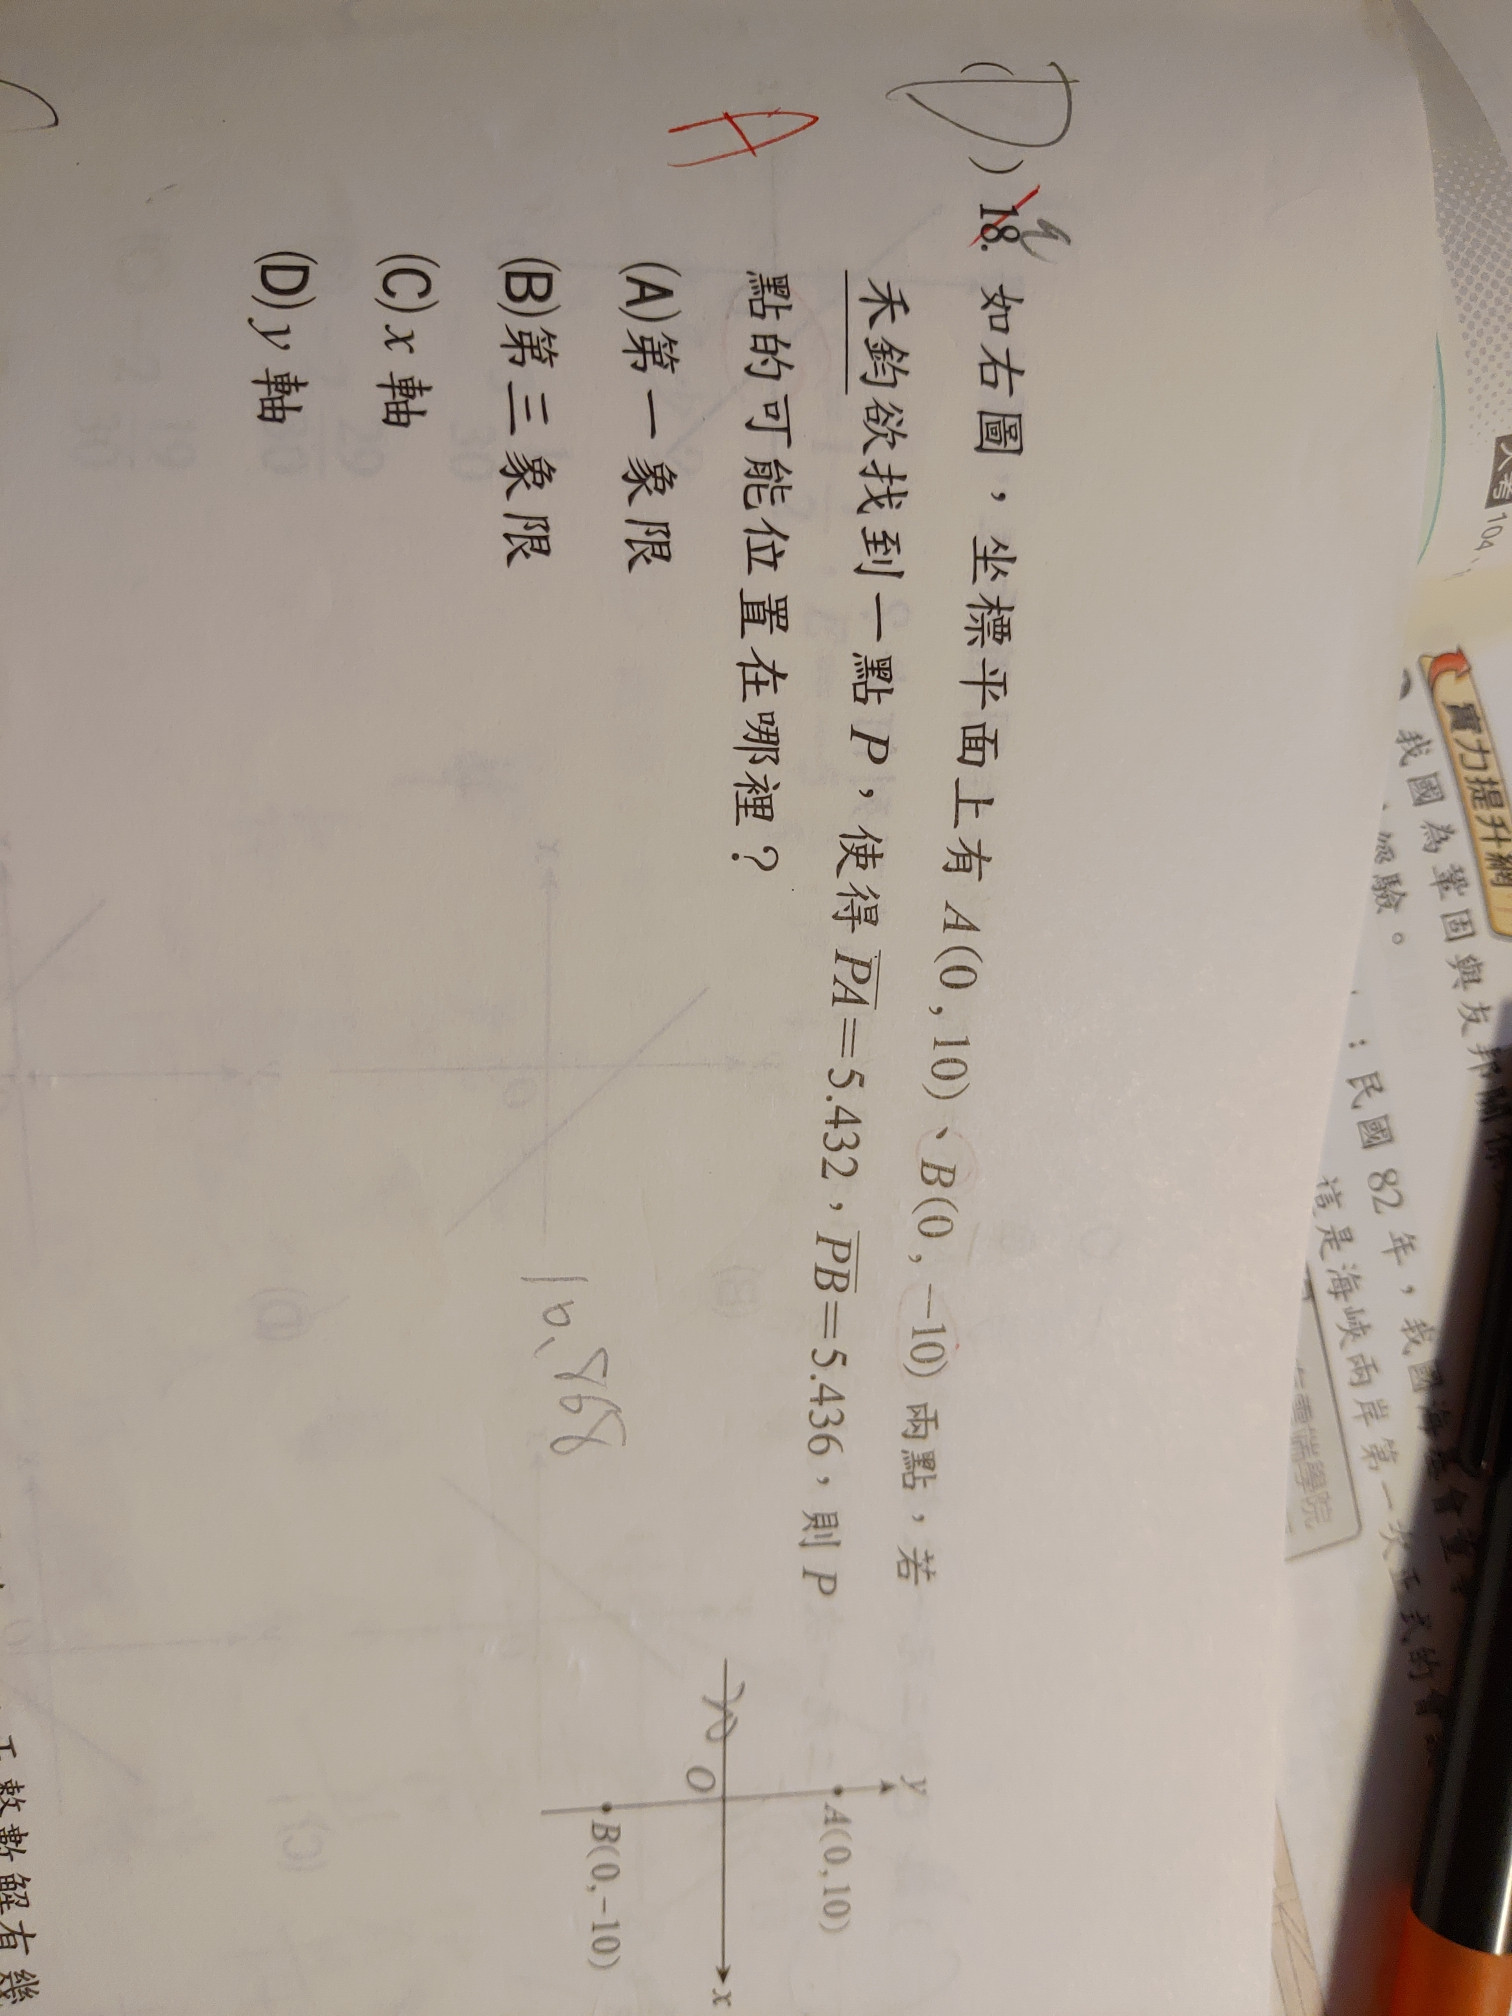 (D) 18. 如右圖，坐標平面上有 A(0 , 10)、B(0 , −10) 兩點，若
禾鈞欲找到一點 P，使得 PA＝5.432，PB＝5.436，則 P
點的可能位置在哪裡？
A
(A)第一象限
(B)第三象限
(C) x 軸
(D) y 軸
10.868
y
A(0,10)
O
x
B(0,−10)
大考
104
實力提升網
我國為鞏固與友邦關係
驗。
：民國 82 年，我國海基會
這是海峽兩岸第一次正式的會
學院
解有幾